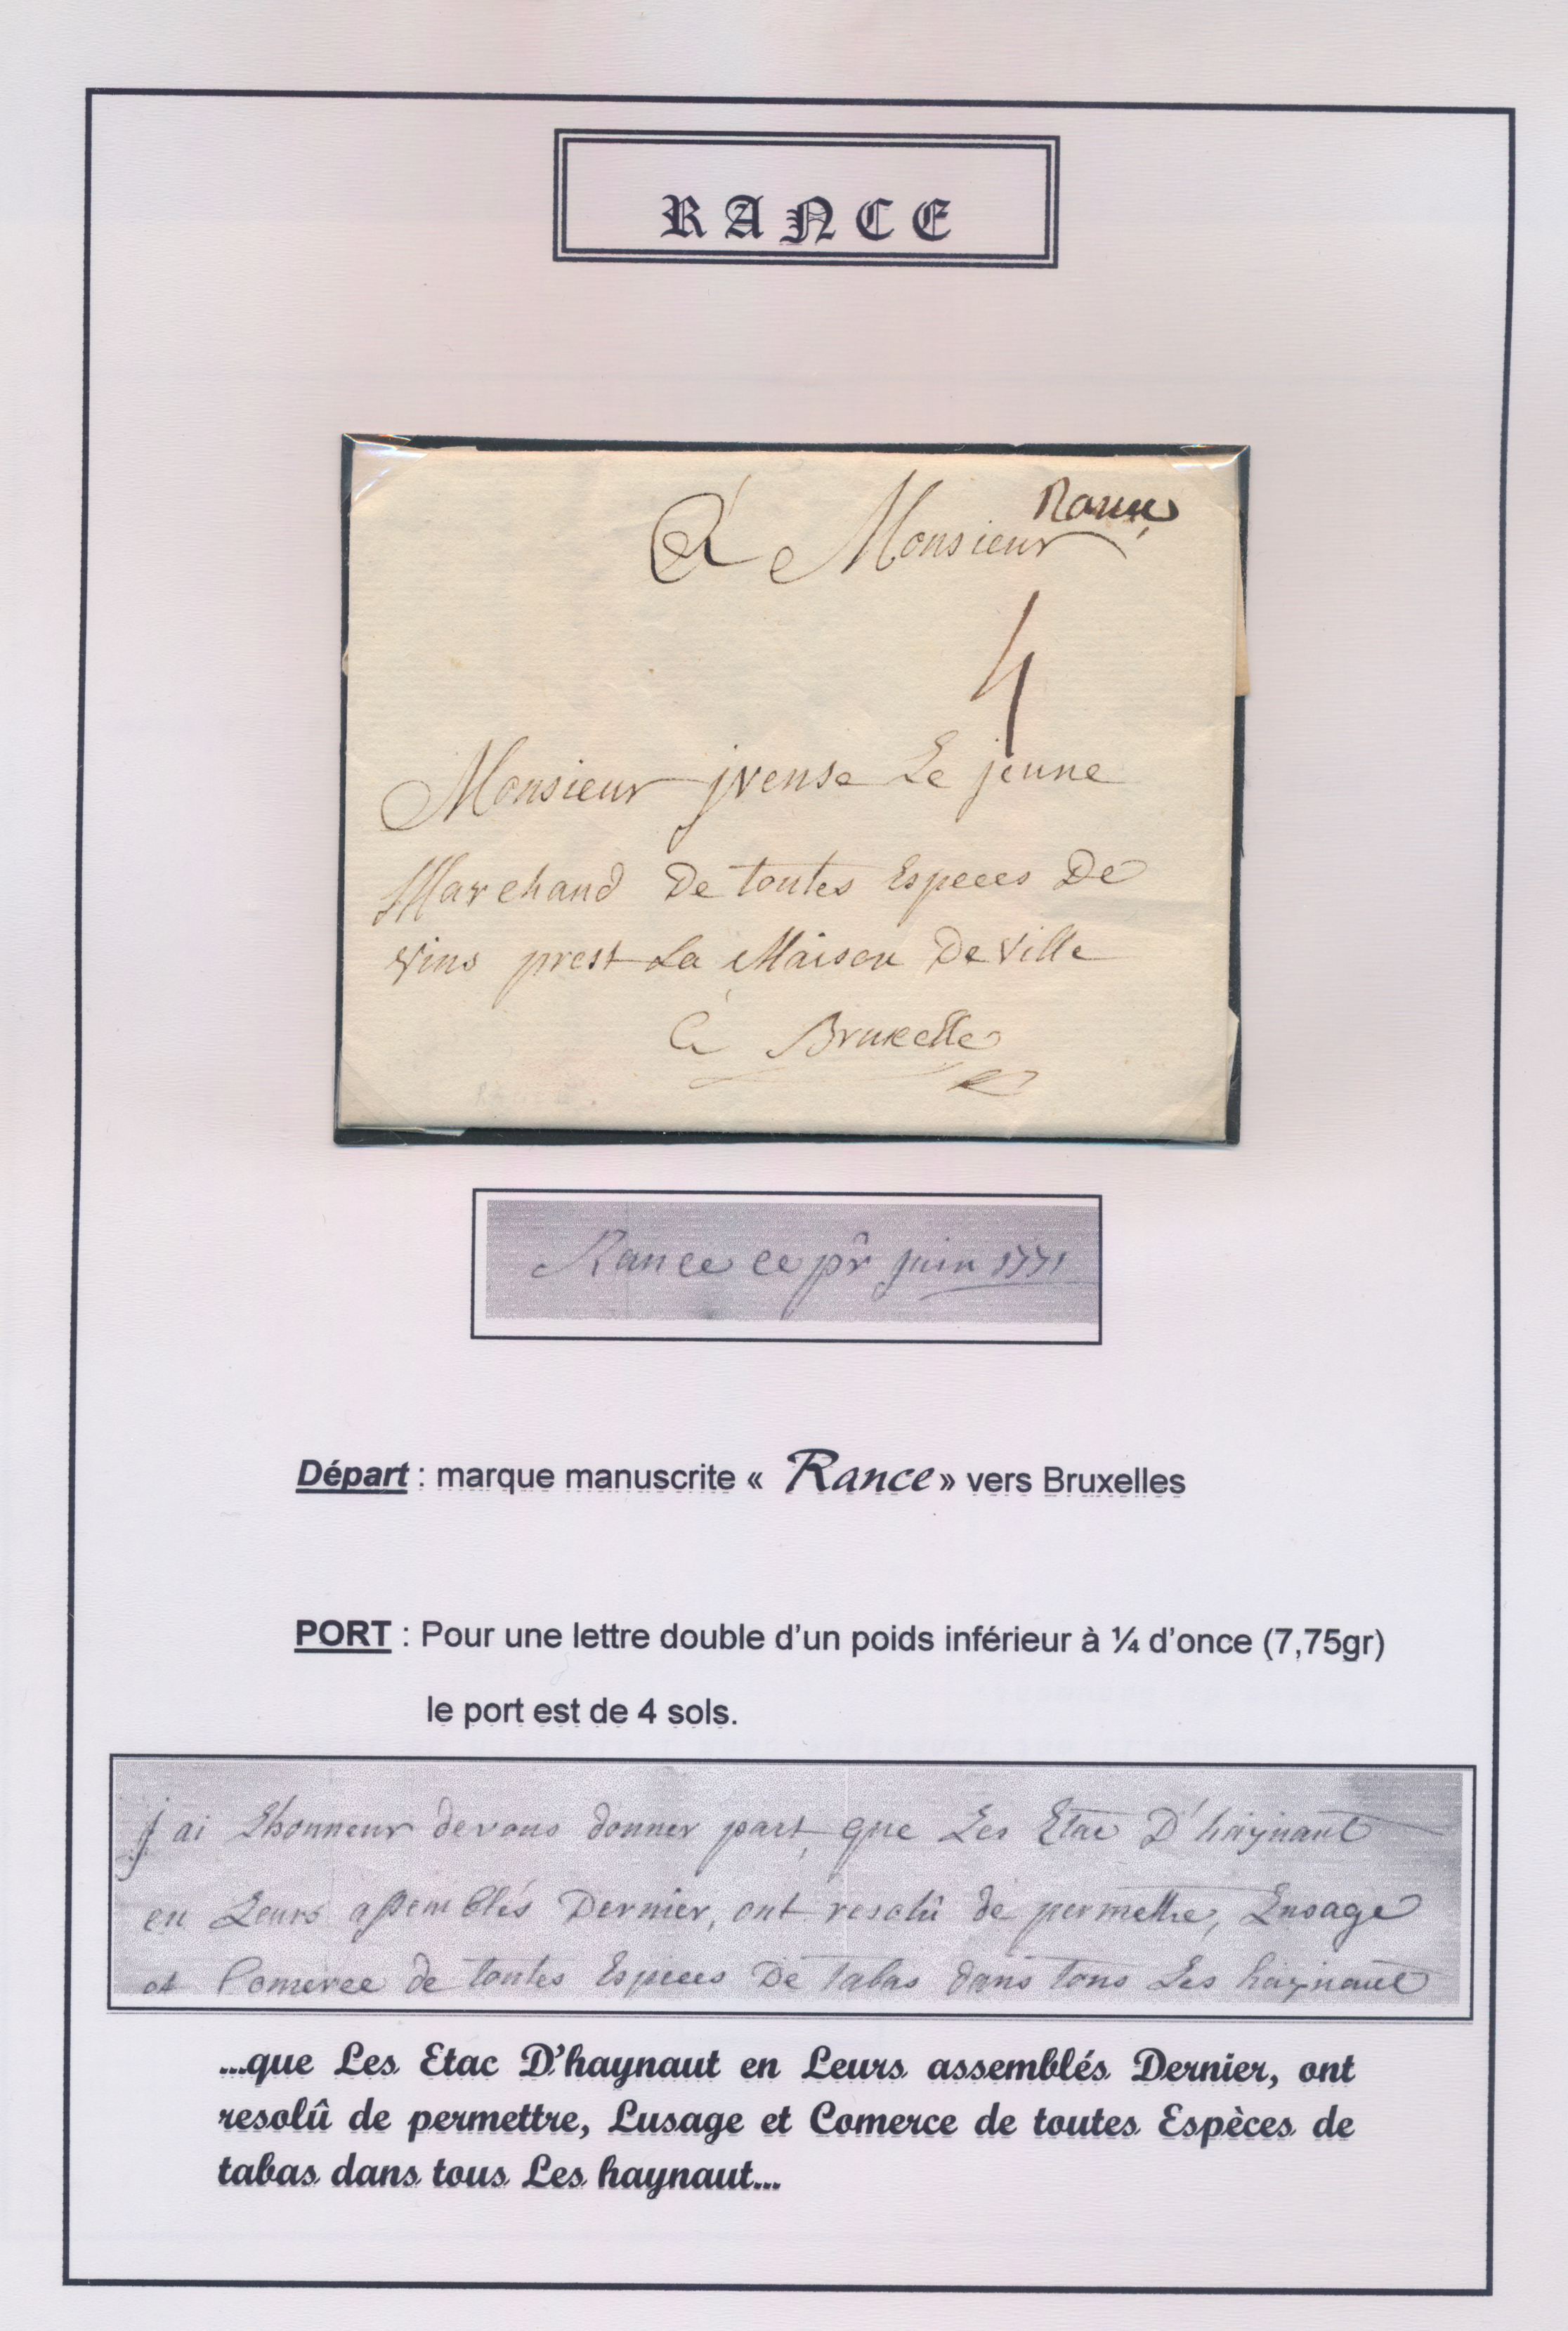 RANCE
Rance
à Monsieur
4
Monsieur jvense Le jeune
Marchand De toutes Especes De
vins prest La Maison De Ville
à Bruxelle
RANCE.
Rance ce pr̂ juin 1771
Départ : marque manuscrite « Rance » vers Bruxelles
PORT : Pour une lettre double d'un poids inférieur à ¼ d'once (7,75gr)
le port est de 4 sols.
j'ai Lhonneur devous donner part que Les Etac D'haynaut
en Leurs assemblés Dernier, ont resolû de permettre, Lusage
et Comerce de toutes Especes De tabas dans tous Les haynaut
...que Les Etac D'haynaut en Leurs assemblés Dernier, ont
resolû de permettre, Lusage et Comerce de toutes Espèces de
tabas dans tous Les haynaut...